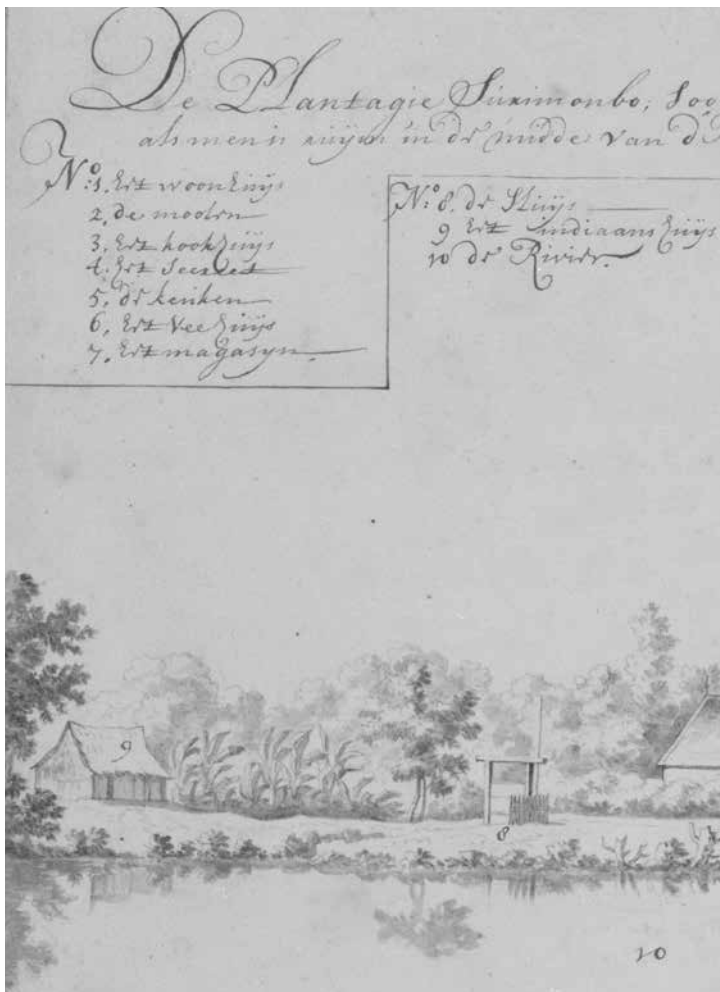 De Plantagie Surimonbo, soo
als men is ruijm in de midde van d
No:1. het woonhuijs
2. de moolen
3. het kookhuijs
4. het
5. de keuken
6. het veehuijs
7. het magasyn.
No: 8. de Sluijs
9 het indiaans huijs
10 de Rivier.
9
8
10